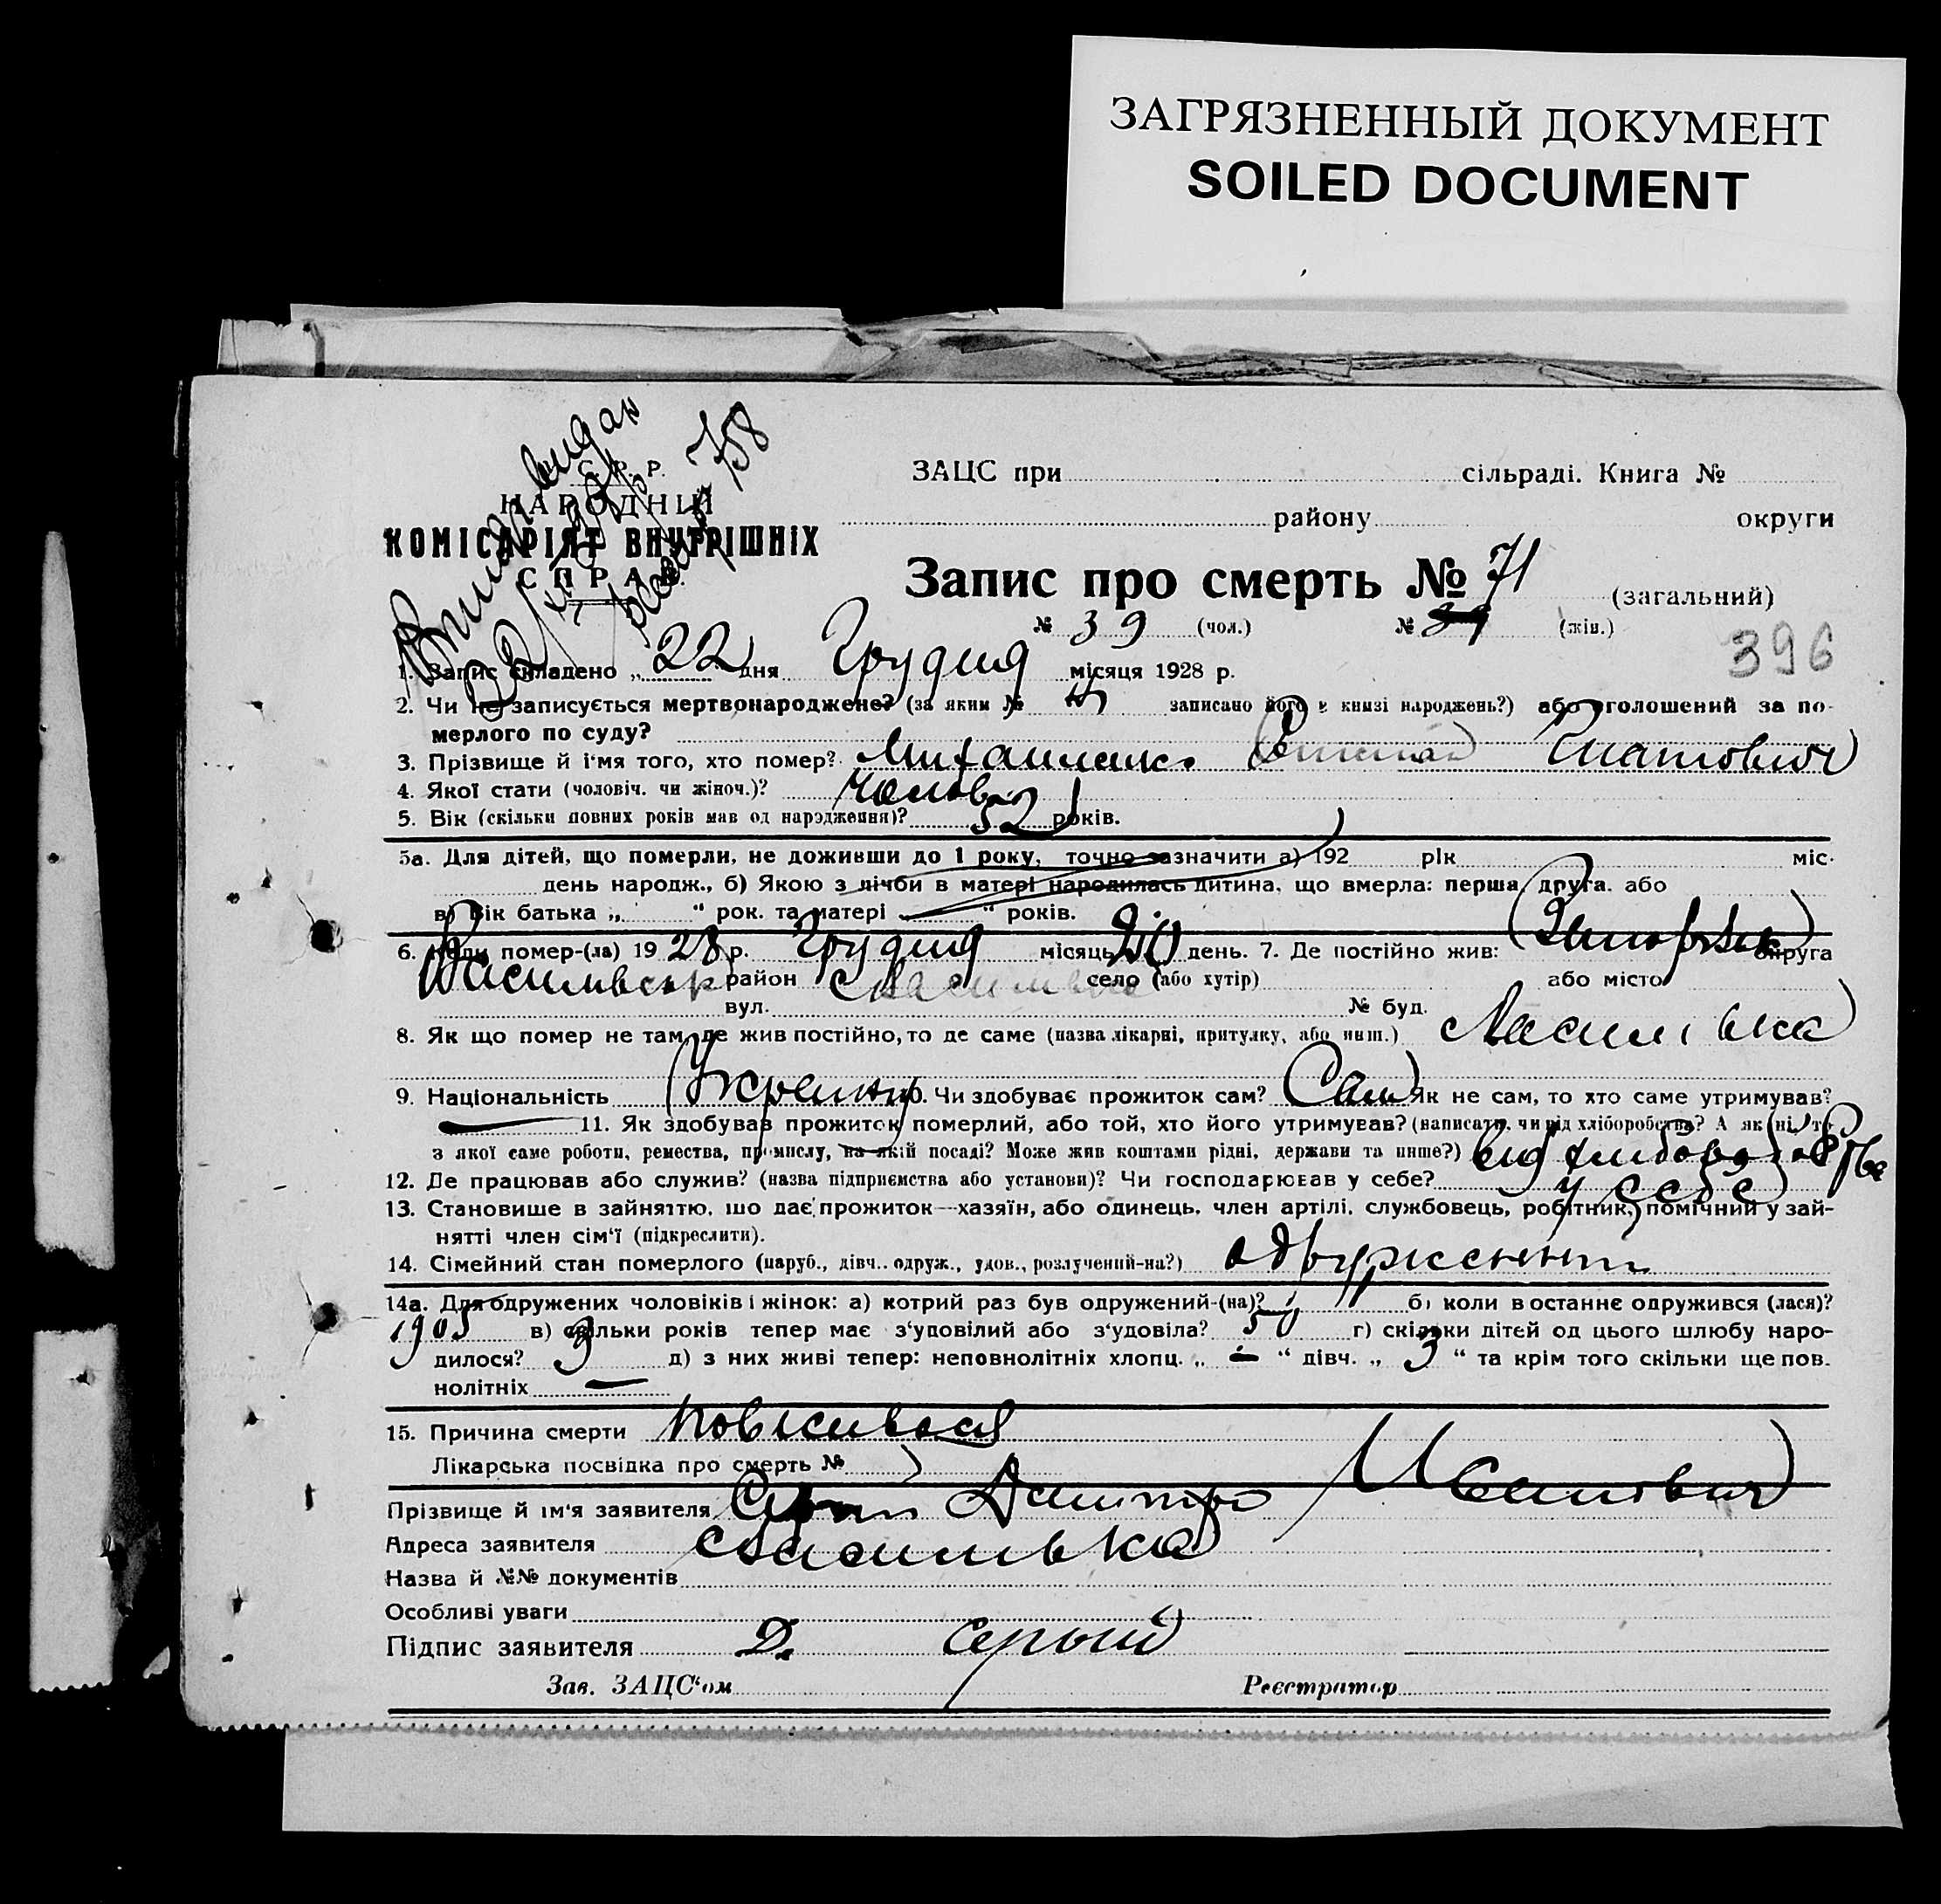 ЗАГРЯЗНЕННЫЙ ДОКУМЕНТ
SOILED DOCUMENT
С. Р. Р.
НАРОДНІЙ
КОМІСАРІЯТ ВНУТРІШНІХ
СПРАВ.
758
ЗАЦС при сільраді. Книга №
району округи
Запис про смерть № 71 (загальний)
№ 39 (чол.) № (жін.)
396
1. Запис складено „ 22 дня Грудня місяця 1928 р.
2. Чи не записується мертвонароджене? (за яким № записано його в книзі народжень?) або оголошений за по-
мерлого по суду?
3. Прізвище й і'мя того, хто помер? Михайленко Гнатович
4. Якої стати (чоловіч. чи жіноч.)? Чоловіч
5. Вік (скільки повних років мав од народження)? 52 років.
5а. Для дітей, що померли, не доживши до 1 року, точно зазначити а) 192 рік міс.
день народж., б) Якою з лічби в матері народилась дитина, що вмерла: перша, друга, або
в) Вік батька „ “ рок. та матері „ “ років.
6. Коли помер-(ла) 1928 р. Грудня місяць 20 день. 7. Де постійно жив: Запорізьк округа
Васильвськ район с Василівка село (або хутір) або місто
вул. № буд.
8. Як що помер не там, де жив постійно, то де саме (назва лікарні, притулку, або инш.) с Василівка
9. Національність Украинц 10. Чи здобуває прожиток сам? Сам Як не сам, то хто саме утримував?
11. Як здобував прожиток померлий, або той, хто його утримував? (написати, чи від хліборобства? А як ні, то
з якої саме роботи, ремества, промислу, на якій посаді? Може жив коштами рідні, держави та инше?) від хліборобства
12. Де працював або служив? (назва підприємства або установи)? Чи господарював у себе? у себе
13. Становище в зайняттю, що дає прожиток—хазяїн, або одинець, член артілі, службовець, робітник, помічний у зай-
нятті член сім'ї (підкреслити).
14. Сімейний стан померлого (паруб., дівч.. одруж., удов., розлучений-на?) одружений
14а. Для одружених чоловіків і жінок: а) котрий раз був одружений-(на)? 1 б) коли востаннє одружився (лася)?
1905 в) скільки років тепер має з'уповілий або з'удовіла? 50 г) скільки дітей од цього шлюбу наро-
дилося? 3 д) з них живі тепер: неповнолітніх хлопц. „ — “ дівч. „ 3 “ та крім того скільки ще пов.
нолітніх —
15. Причина смерти повісивася
Лікарська посвідка про смерть №
Прізвище й ім'я заявителя Дмитро Иванович
Адреса заявителя с Василівка
Назва й №№ документів
Особливі уваги
Підпис заявителя Д. Серый
Зав. ЗАЦС'ом Реєстратор